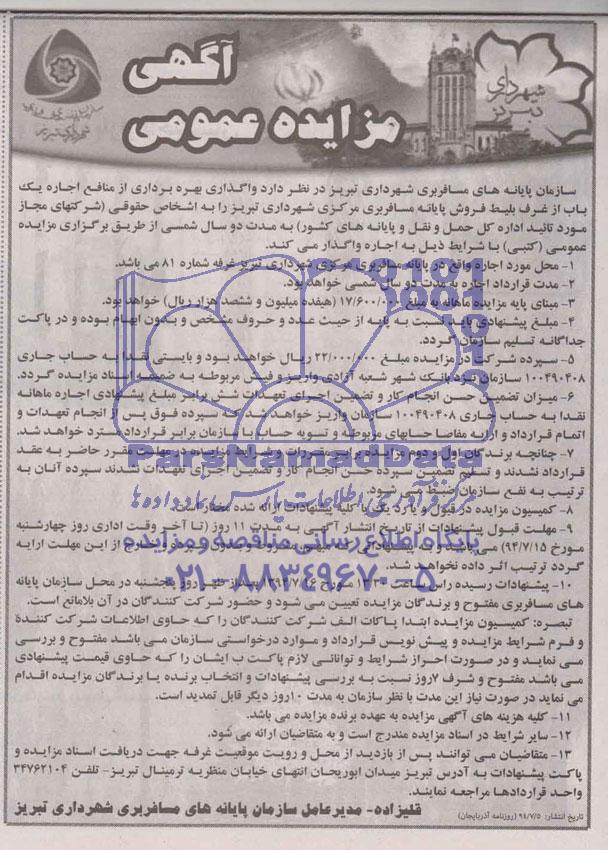 آگهی
مزایده عمومی
شهرداری
تبریز
سازمان پایانه های مسافربری شهرداری تبریز در نظر دارد واگذاری بهره برداری از منافع اجاره یک
باب از غرف بلیط فروش پایانه مسافربری مرکزی شهرداری تبریز را به اشخاص حقوقی (شرکتهای مجاز
مورد تائید اداره کل حمل و نقل و پایانه های کشور) به مدت دو سال شمسی از طریق برگزاری مزایده
عمومی (کتبی) با شرایط ذیل به اجاره واگذار می کند.
۱- محل مورد اجاره واقع در پایانه مسافربری مرکزی شهرداری تبریز غرفه شماره ۸۱ می باشد.
۲- مدت قرارداد اجاره به مدت دو سال شمسی خواهد بود.
۳- مبنای پایه مزایده ماهانه به مبلغ ۱۷/۶۰۰/۰۰۰ (هیفده میلیون و ششصد هزار ریال) خواهد بود.
۴- مبلغ پیشنهادی باید نسبت به پایه از حیث عدد و حروف مشخص و بدون ابهام بوده و در پاکت
جداگانه تسلیم سازمان گردد.
۵- سپرده شرکت در مزایده مبلغ ۲۲/۰۰۰/۰۰۰ ریال خواهد بود و بایستی نقدا به حساب جاری
۱۰۰۴۹۰۴۰۸ سازمان نزد بانک شهر شعبه آزادی واریز و فیش مربوطه به ضمیمه اسناد مزایده گردد.
۶- میزان تضمین حسن انجام کار و تضمین اجرای تعهدات شش برابر مبلغ پیشنهادی اجاره ماهانه
نقدا به حساب جاری ۱۰۰۴۹۰۴۰۸ سازمان واریز خواهد شد که سپرده فوق پس از انجام تعهدات و
اتمام قرارداد و ارایه مفاصا حسابهای مربوطه و تسویه حساب با سازمان برابر قرارداد مسترد خواهد شد.
۷- چنانچه برندگان اول و دوم مزایده برابر مقررات و شرایط مزایده در مهلت مقرر حاضر به عقد
قرارداد نشدند و تسلیم تضمین سپرده حسن انجام کار و تضمین اجرای تعهدات نشدند سپرده آنان به
ترتیب به نفع سازمان ضبط می شود.
۸- کمیسیون مزایده در قبول و یا رد یک یا کلیه پیشنهادات ارائه شده مختار است.
۹- مهلت قبول پیشنهادات از تاریخ انتشار آگهی به مدت ۱۱ روز (تا آخر وقت اداری روز چهارشنبه
مورخ ۹۴/۷/۱۵) می باشد و به پیشنهاداتی که مبهم مشروط و بدون سپرده و خارج از این مهلت ارایه
گردد ترتیب اثر داده نخواهد شد.
۱۰- پیشنهادات رسیده راس ساعت ۱۳:۳۰ مورخ ۱۳۹۴/۷/۱۶ بعد از ظهر روز پنجشنبه در محل سازمان پایانه
های مسافربری مفتوح و برندگان مزایده تعیین می شود و حضور شرکت کنندگان در آن بلامانع است.
تبصره: کمیسیون مزایده ابتدا پاکات الف شرکت کنندگان را که حاوی اطلاعات شرکت کننده
و فرم شرایط مزایده و پیش نویس قرارداد و موارد درخواستی سازمان می باشد مفتوح و بررسی
می نماید و در صورت احراز شرایط و توانائی لازم پاکت ب ایشان را که حاوی قیمت پیشنهادی
می باشد مفتوح و شرف ۷ روز نسبت به بررسی پیشنهادات و انتخاب برنده یا برندگان مزایده اقدام
می نماید در صورت نیاز این مدت با نظر سازمان به مدت ۱۰ روز دیگر قابل تمدید است.
۱۱- کلیه هزینه های آگهی مزایده به عهده برنده مزایده می باشد.
۱۲- سایر شرایط در اسناد مزایده مندرج است و به متقاضیان ارائه می شود.
۱۳- متقاضیان می توانند پس از بازدید از محل و رویت موقعیت غرفه جهت دریافت اسناد مزایده و
پاکت پیشنهادات به آدرس تبریز میدان ابوریحان انتهای خیابان منظریه ترمینال تبریز- تلفن ۳۴۷۶۲۱۰۴
واحد قراردادها مراجعه نمایند.
قلیزاده- مدیرعامل سازمان پایانه های مسافربری شهرداری تبریز
تاریخ انتشار: ۹۴/۷/۵ (روزنامه آذربایجان)
ParsNamadData
مرکز فرآوری اطلاعات پارس نماد داده ها
پایگاه اطلاع رسانی مناقصه و مزایده
۰۲۱-۸۸۳۴۹۶۷۰-۵